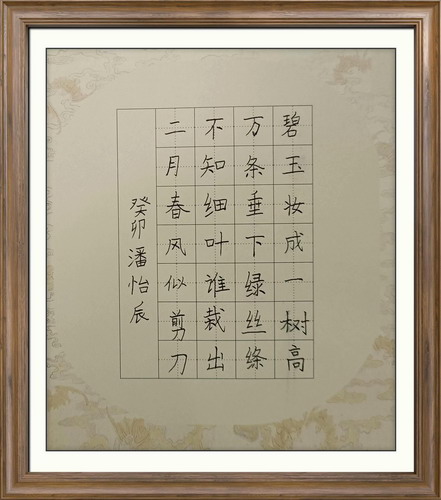 碧玉妆成一树高
万条垂下绿丝绦
不知细叶谁裁出
二月春风似剪刀
癸卯潘怡辰